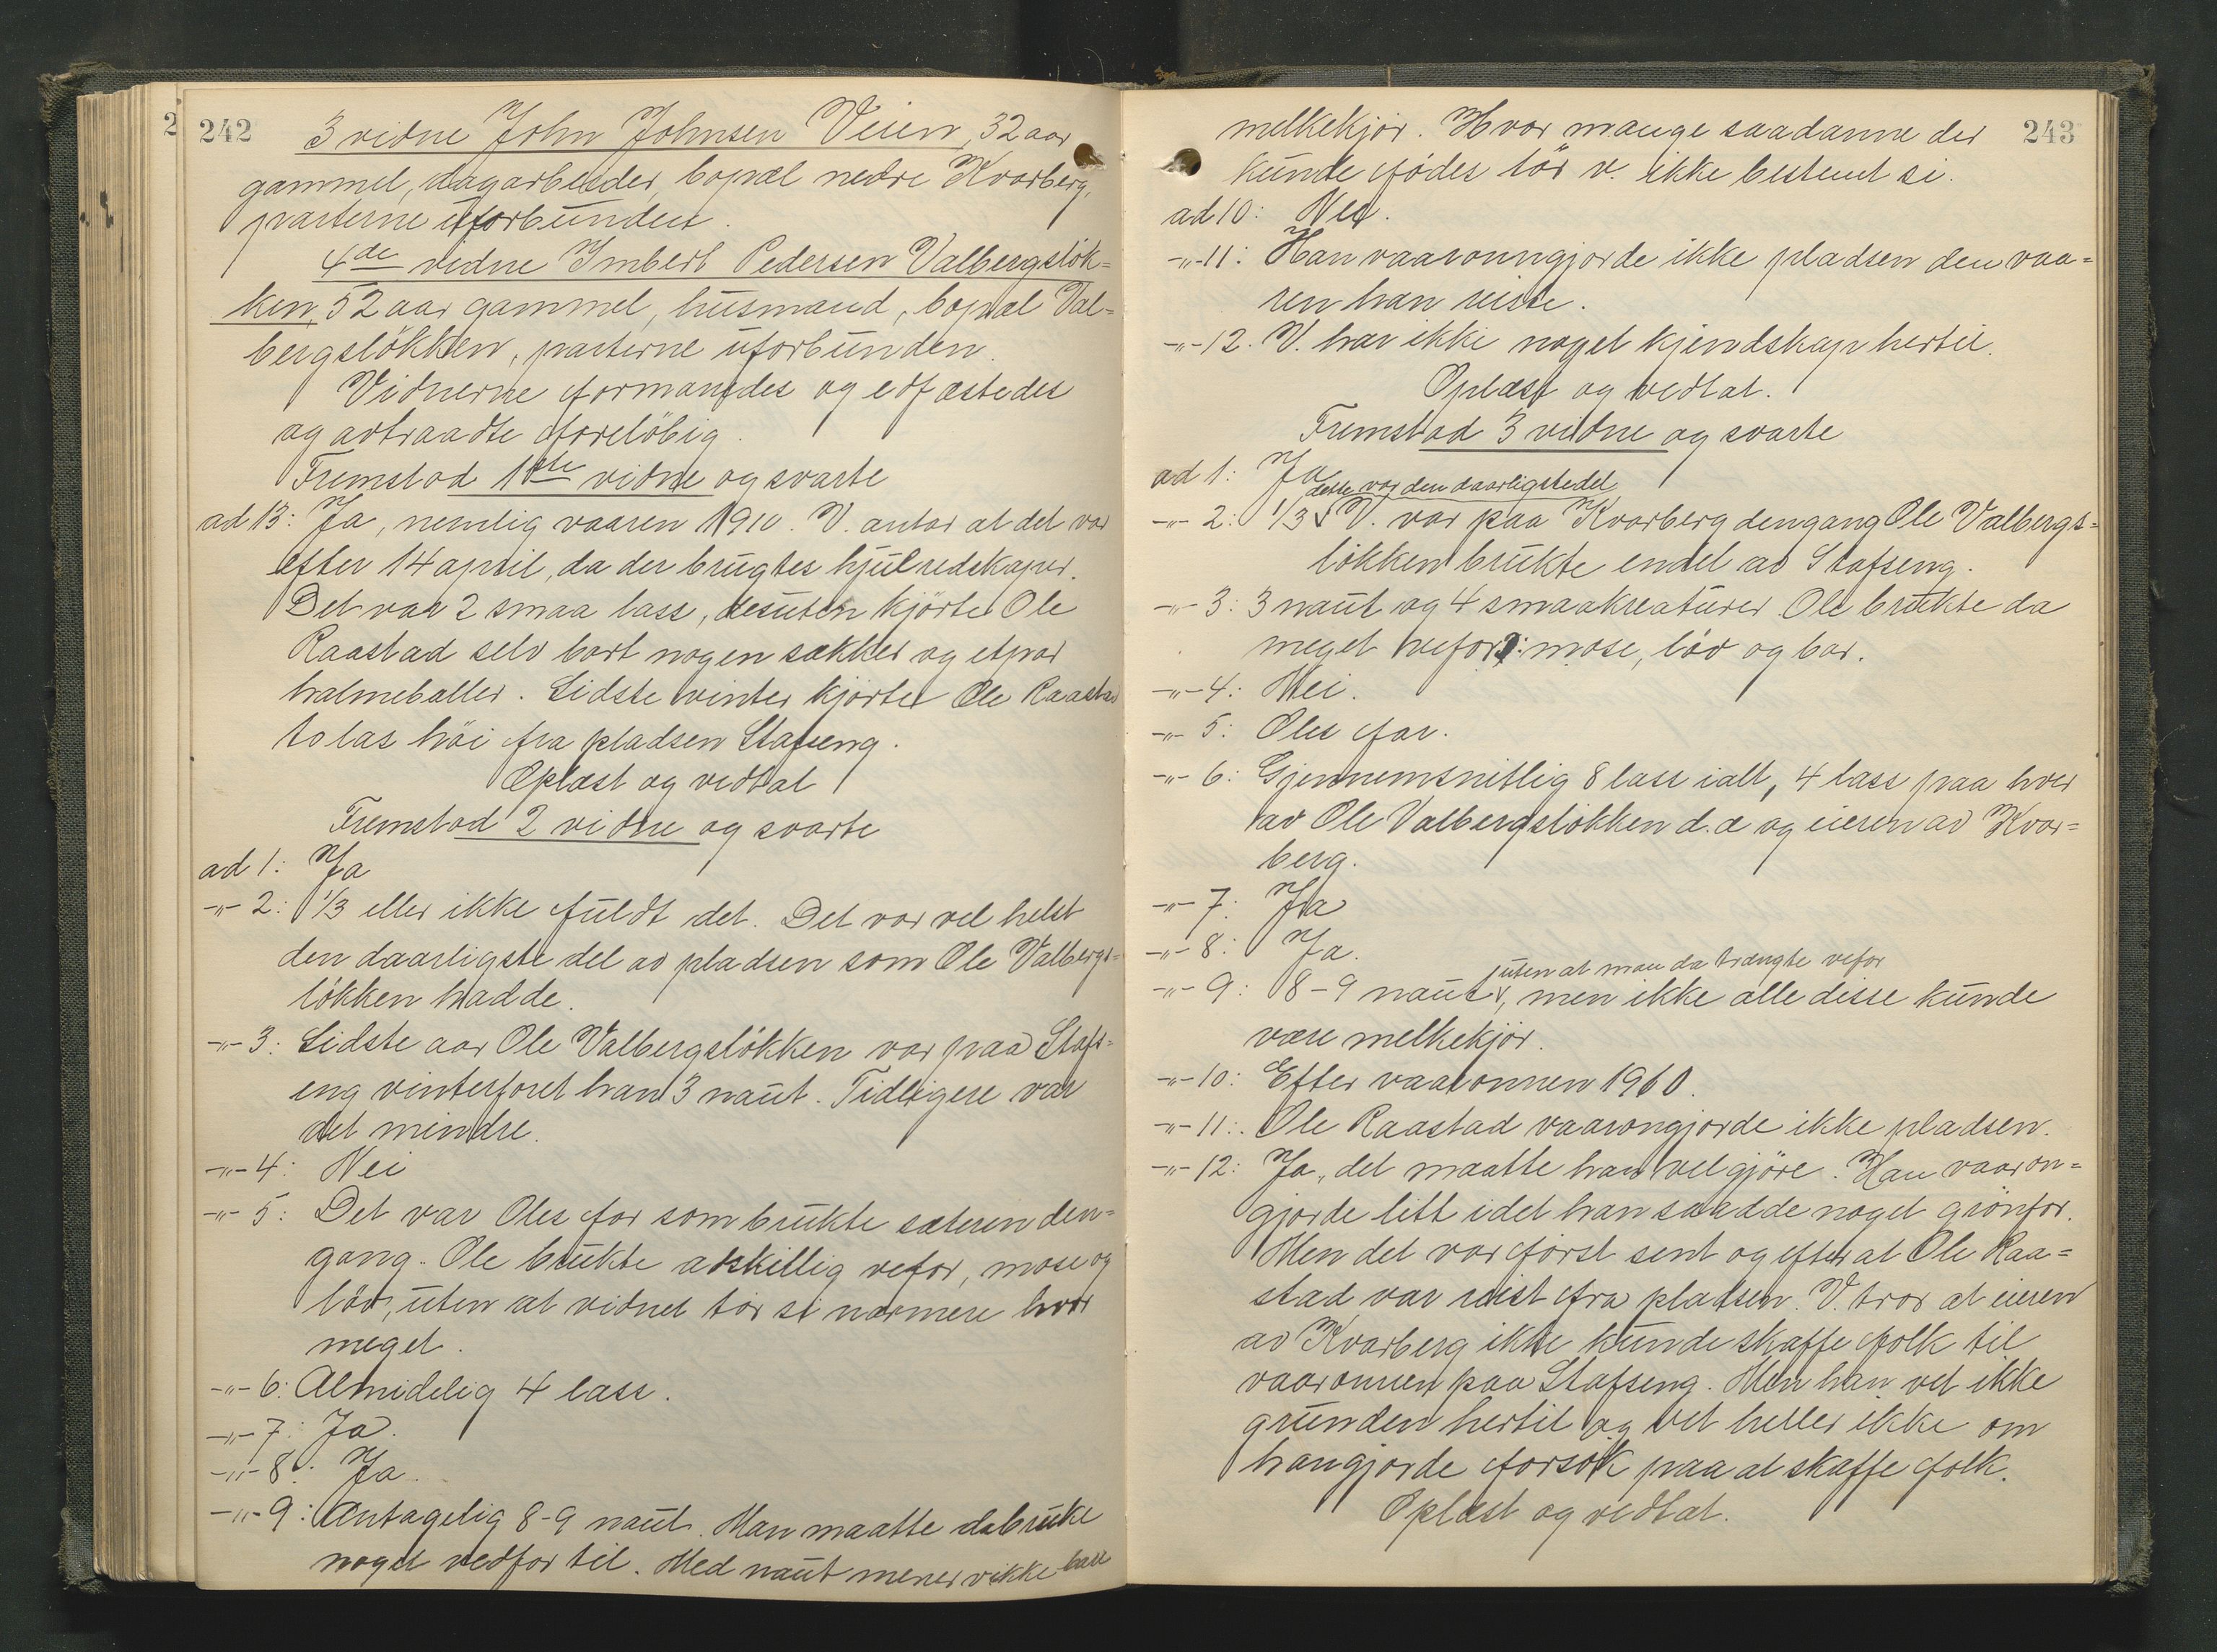 242
3 vidne John Johnsen Veien, 32 aar
gammel, dagarbeider, bopæl nedre Kvarberg,
parterne uforbunden.
4de vidne Imbert Pedersen Valbergsløk=
ken, 52 aar gammel, husmand, bopæl Val=
bergsløkken, parterne uforbunden.
Vidnerne formanedes og edfæstedes
og avtraadte foreløbig.
Fremstod 1ste vidne og svarte
ad 13: Ja, nemlig vaaren 1910. V. antar at det var
efter 14 april, da der brugtes hjulredskaper.
Det var 2 smaa lass, desuten kjørte Ole
Raastad selv bort nogen sækker og etpar
halmeballer. Sidste vinter kjørte Ole Raastad
to las höi fra pladsen Stafseng.
Oplæst og vedtat
Fremstod 2 vidne og svarte
ad 1: Ja
-"- 2: 1/3 eller ikke fuldt det. Det var vel helst
den daarligste del av pladsen som Ole Valbergs=
løkken hadde.
-"- 3: Sidste aar Ole Valbergsløkken var paa Stafs=
eng vinterforet han 3 naut. Tidligere var
det mindre.
-"- 4: Nei
-"- 5: Det var Oles far som brukte sæteren den=
gang. Ole brukte atskillig vefor, mose og
löv, uten at vidnet tör si nærmere hvor
meget.
-"- 6: Almidelig 4 lass.
-"- 7: Ja.
-"- 8: Ja.
-"- 9: Antagelig 8-9 naut. Man maatte da bruke
noget vedfor til. Med naut mener v ikke bare
243
melkekjör. Hvor mange saadanne der
kunde födes tör v. ikke bestemt si.
ad 10: Nei.
-"- 11: Han vaaronngjorde ikke pladsen den vaa=
ren han reiste.
-"- 12. V. har ikke noget kjendskap hertil.
Oplæst og vedtat.
Fremstod 3 vidne og svarte
ad 1: Ja
dette var den daarligste del
-"- 2: 1/3 V. var paa Kvarberg dengang Ole Valbergs=
løkken brukte endel av Stafseng.
-"- 3: 3 naut og 4 smaakreaturer. Ole brukte da
meget vefor: mose, löv og bar.
-"- 4: Nei.
-"- 5: Oles far.
-"- 6: Gjennemsnitlig 8 lass ialt, 4 lass paa hver
av Ole Valbergsløkken d.æ og eieren av Kvar=
berg.
-"- 7: Ja
-"- 8: Ja.
uten at man da trængte vefor
-"- 9: 8-9 naut, men ikke alle disse kunde
være melkekjör.
-"- 10: Efter vaaronnen 1910.
-"- 11: Ole Raastad vaarongjorde ikke pladsen.
-"- 12: Ja, det maatte han vel gjöre. Han vaaron=
gjorde litt idet han saadde noget grönfor.
Men det var först sent og efter at Ole Raa=
stad var reist fra pladsen. V. tror at eieren
av Kvarberg ikke kunde skaffe folk til
vaaronnen paa Stafseng. Men han vet ikke
grunden hertil og vet heller ikke om
han gjorde forsök paa at skaffe folk.
Oplæst og vedtat.